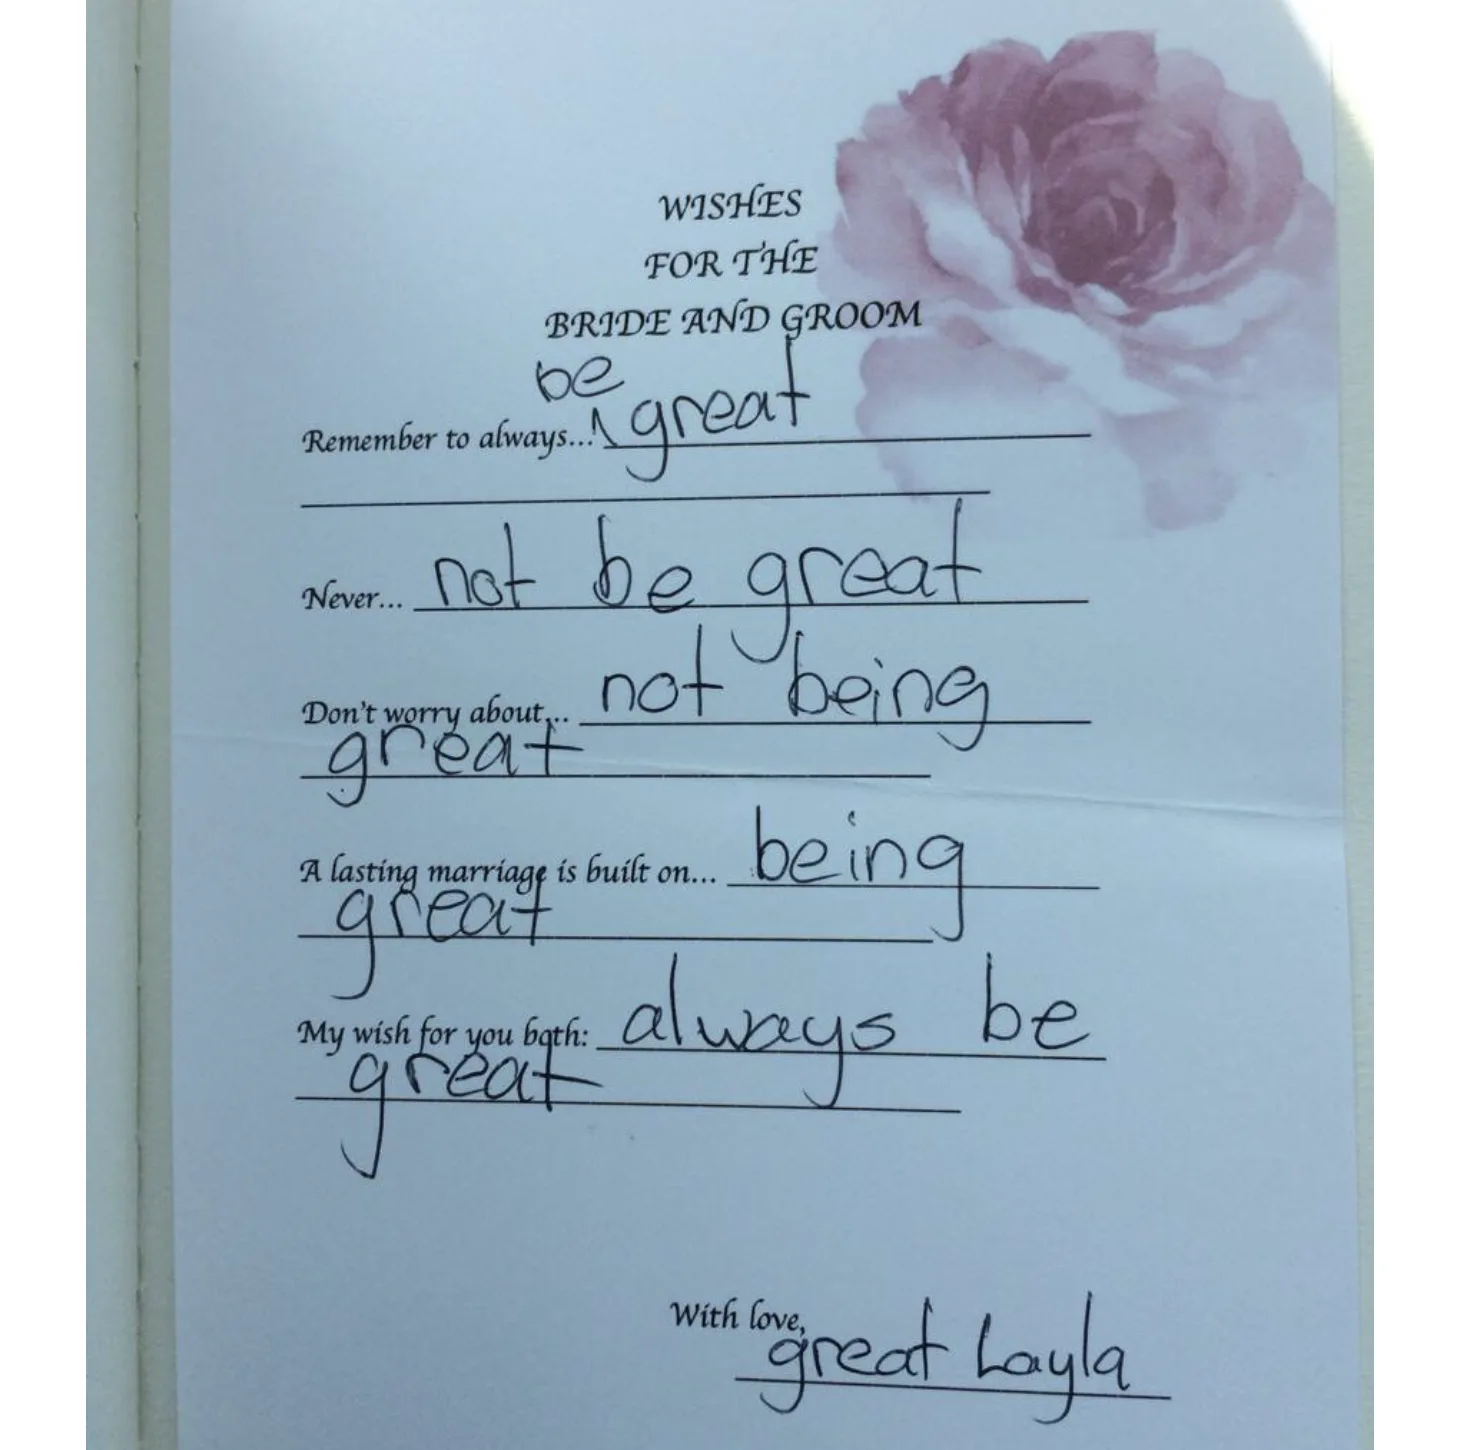 WISHES
FOR THE
BRIDE AND GROOM
be
Remember to always... great
Never... not be great
Don't worry about... not being
great
A lasting marriage is built on... being
great
My wish for you both: always be
great
With love,
great Layla